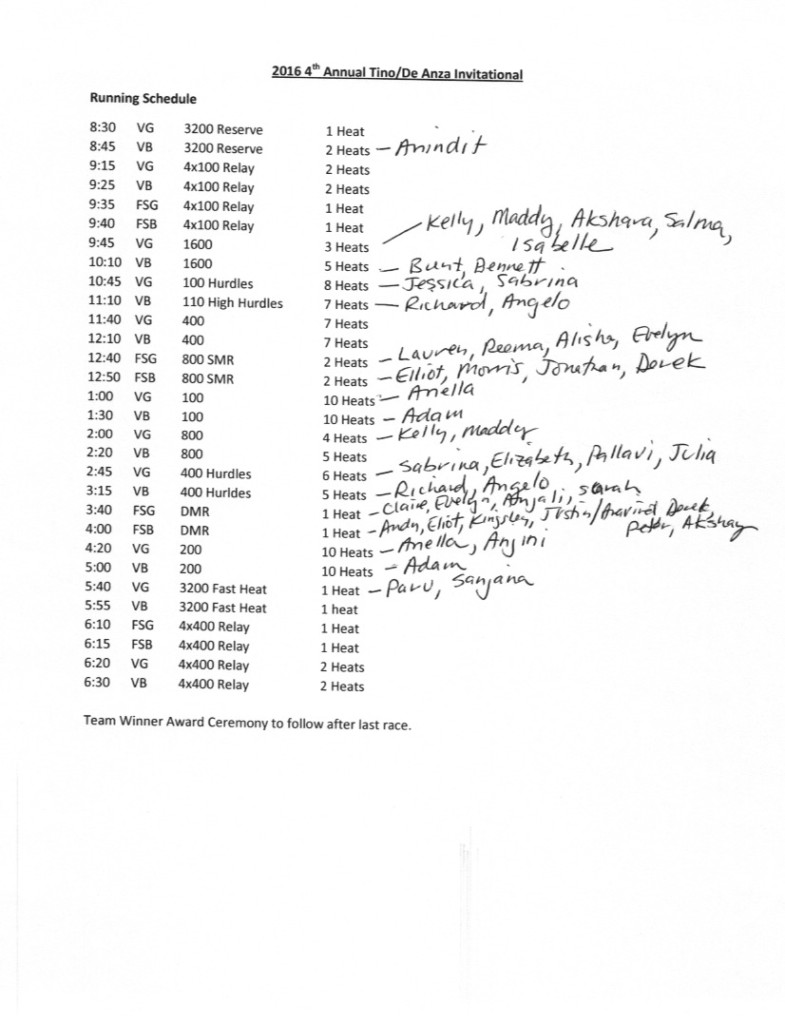 2016 4th Annual Tino/De Anza Invitational
Running Schedule
8:30 VG 3200 Reserve 1 Heat
8:45 VB 3200 Reserve 2 Heats – Anindit
9:15 VG 4x100 Relay 2 Heats
9:25 VB 4x100 Relay 2 Heats
9:35 FSG 4x100 Relay 1 Heat
9:40 FSB 4x100 Relay 1 Heat
9:45 VG 1600 3 Heats – Kelly, Maddy, Akshara, Salma,
Isabelle
10:10 VB 1600 5 Heats – Bennett
10:45 VG 100 Hurdles 8 Heats – Jessica, Sabrina
11:10 VB 110 High Hurdles 7 Heats – Richard, Angelo
11:40 VG 400 7 Heats
12:10 VB 400 7 Heats
12:40 FSG 800 SMR 2 Heats – Lauren, Reema, Alisha, Evelyn
12:50 FSB 800 SMR 2 Heats – Elliot, Morris, Jonathan, Derek
1:00 VG 100 10 Heats – Anella
1:30 VB 100 10 Heats – Adam
2:00 VG 800 4 Heats – Kelly, Maddy
2:20 VB 800 5 Heats
2:45 VG 400 Hurdles 6 Heats – Sabrina, Elizabeth, Pallavi, Julia
3:15 VB 400 Hurldes 5 Heats – Richard, Angelo
3:40 FSG DMR 1 Heat – Claire, Evelyn, Anjali, Sarah
4:00 FSB DMR 1 Heat – Andy, Eliot, Kingsley, Justin/Aravind Derek,
Peter, Akshay
4:20 VG 200 10 Heats – Anella, Anjini
5:00 VB 200 10 Heats – Adam
5:40 VG 3200 Fast Heat 1 Heat – Paru, Sanjana
5:55 VB 3200 Fast Heat 1 heat
6:10 FSG 4x400 Relay 1 Heat
6:15 FSB 4x400 Relay 1 Heat
6:20 VG 4x400 Relay 2 Heats
6:30 VB 4x400 Relay 2 Heats
Team Winner Award Ceremony to follow after last race.